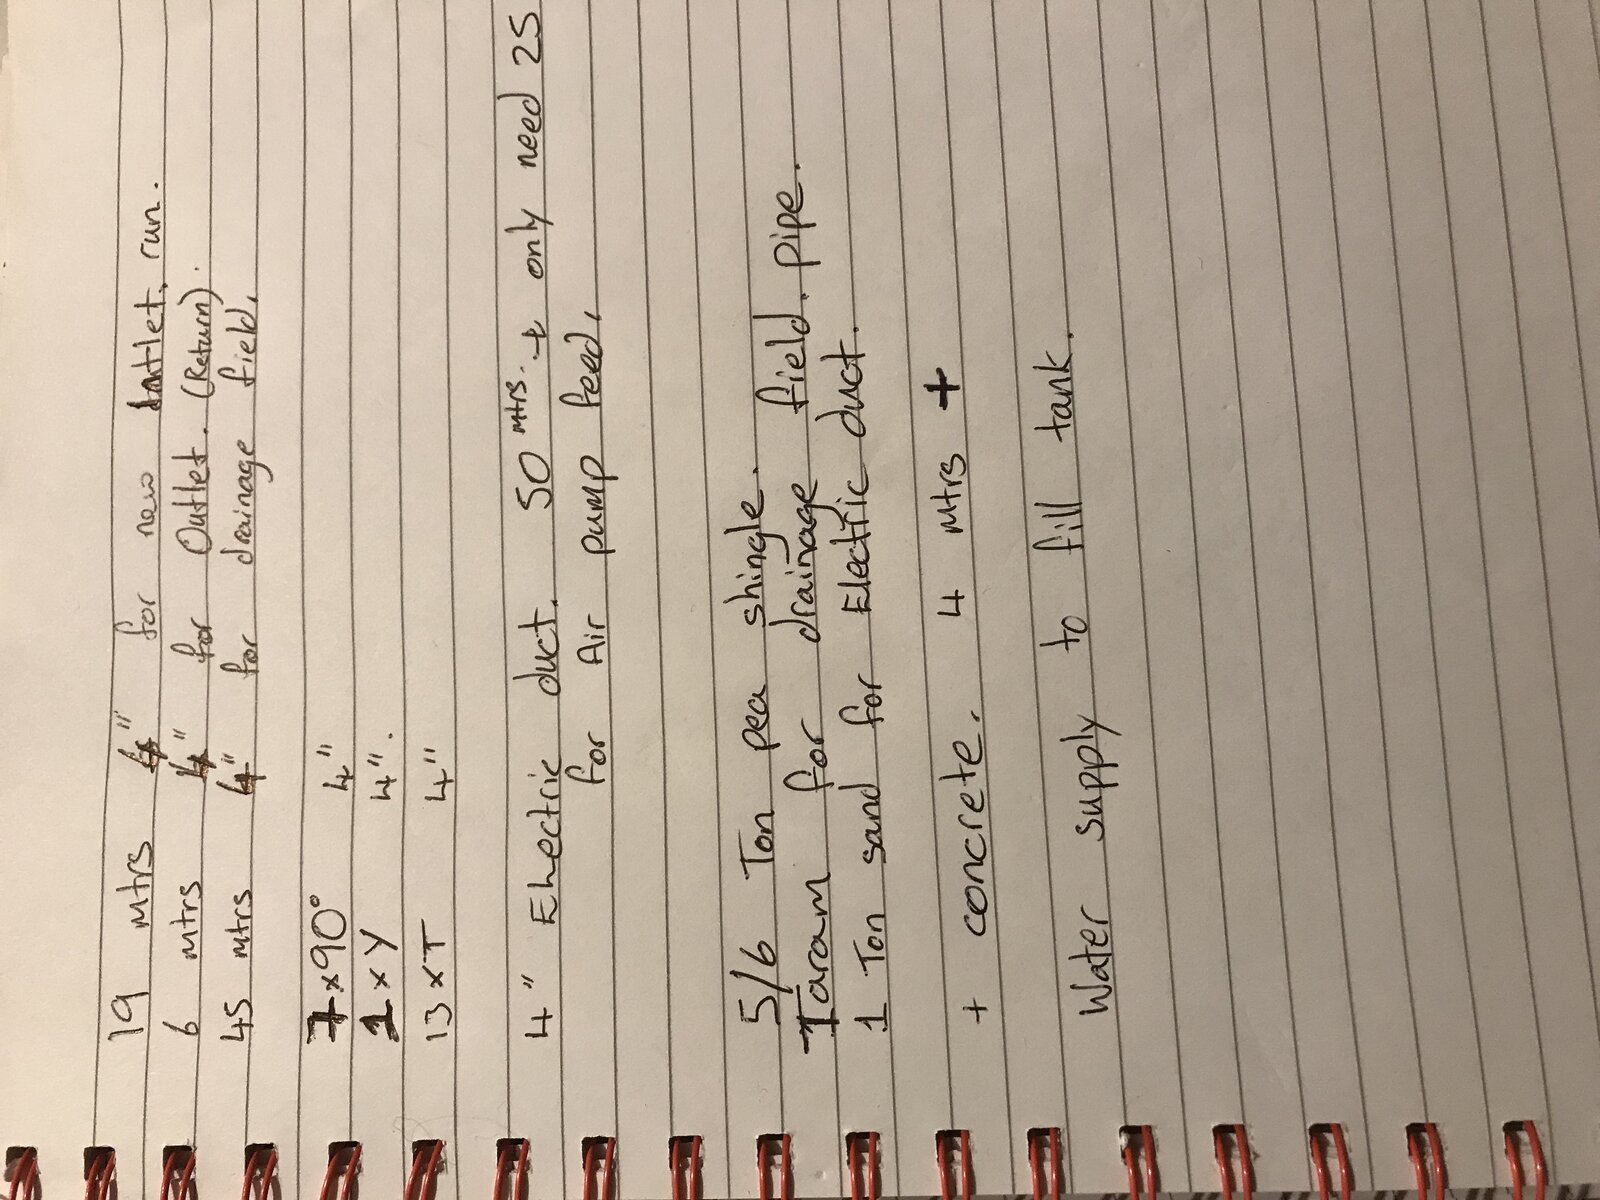 19 mtrs 4" for new Intlet. run.
6 mtrs 4" for Outlet. (Return).
45 mtrs 4" for drainage field.
7 x 90° 4"
1 x Y 4".
13 x T 4"
4" Ehectric duct. 50 mtrs. + only need 25
for Air pump feed,
5/6 Ton pea shingle.
Taram for drainage field. pipe.
1 Ton sand for Electric duct.
+ concrete. 4 mtrs +
Water supply to fill tank.